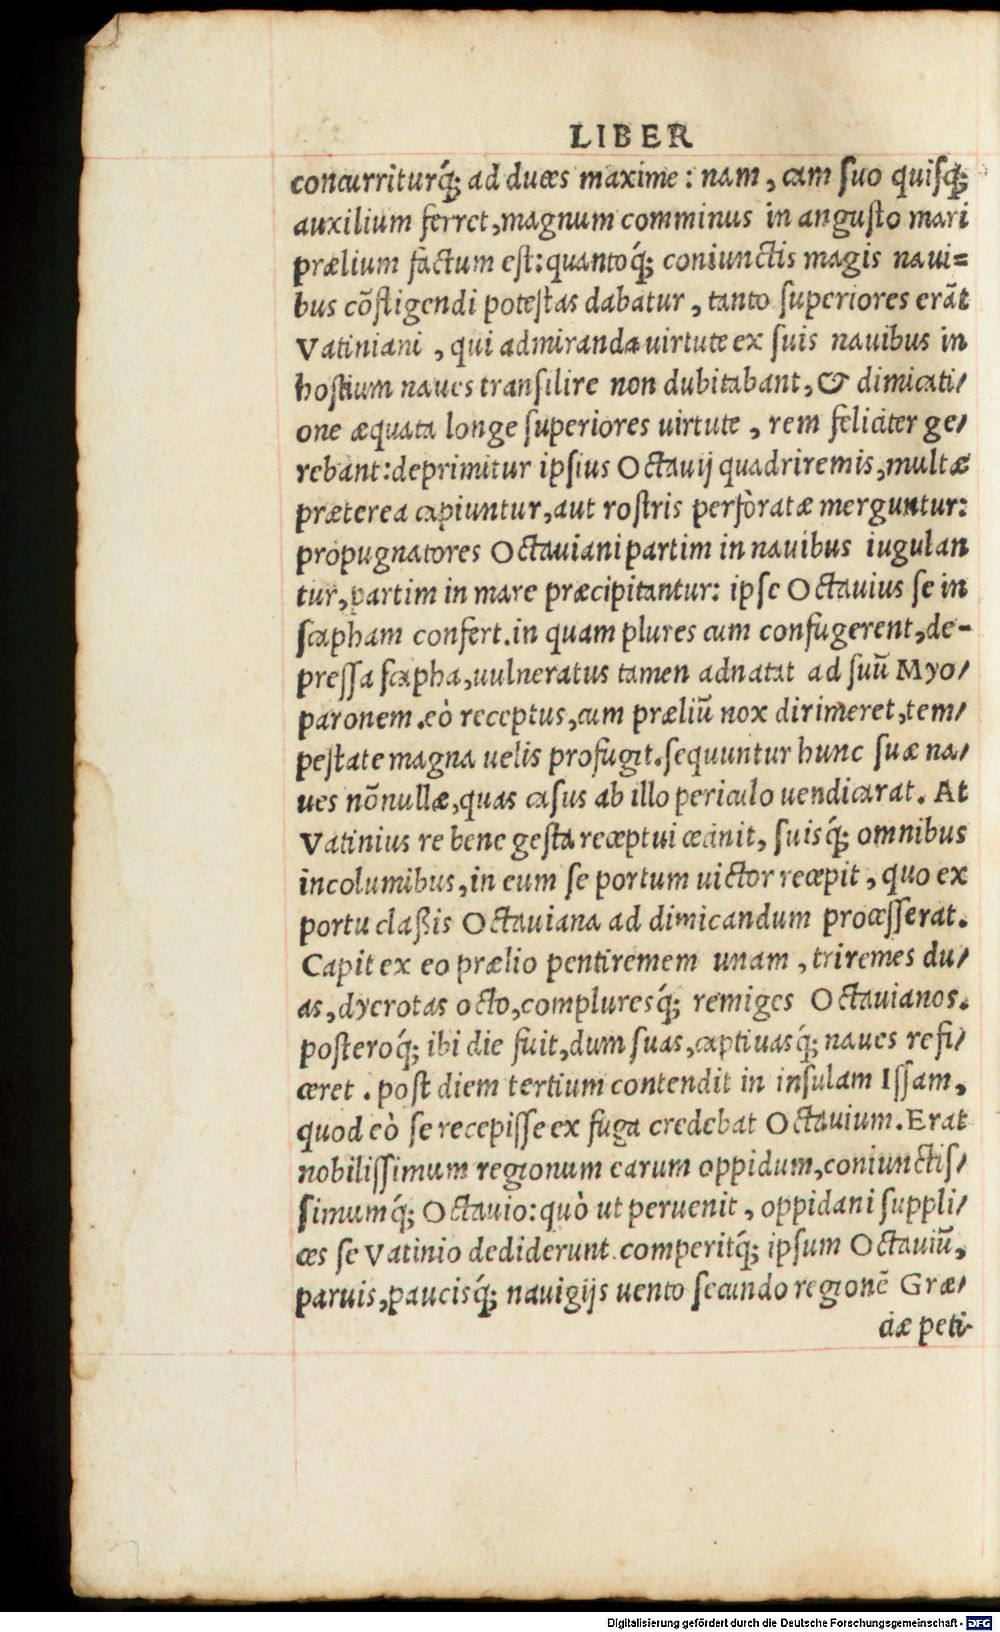 LIBER
concurriturq́; ad duces maxime: nam, cum suo quisq́;
auxilium ferret, magnum comminus in angusto mari
prælium factum est: quantoq́; coniunctis magis naui=
bus cõstigendi potestas dabatur, tanto superiores erãt
Vatiniani, qui admiranda uirtute ex suis nauibus in
hostium naues transilire non dubitabant, & dimicati/
one æquata longe superiores uirtute, rem feliciter ge/
rebant: deprimitur ipsius Octauij quadriremis, multæ
præterea capiuntur, aut rostris perforatæ merguntur:
propugnatores Octauiani partim in nauibus iugulan
tur, partim in mare præcipitantur: ipse Octauius se in
scapham confert. in quam plures cum confugerent, de-
pressa scapha, uulneratus tamen adnatat ad suũ Myo/
paronem. eò receptus, cum præliũ nox dirimeret, tem/
pestate magna uelis profugit. sequuntur hunc suæ na/
ues nõnullæ, quas casus ab illo periculo uendicarat. At
Vatinius re bene gesta receptui cecinit, suisq́; omnibus
incolumibus, in eum se portum uictor recepit, quo ex
portu claßis Octauiana ad dimicandum processerat.
Capit ex eo prælio pentiremem unam, triremes du/
as, dycrotas octo, compluresq́; remiges Octauianos.
posteroq́; ibi die fuit, dum suas, captiuasq́; naues refi/
ceret. post diem tertium contendit in insulam Issam,
quod eò se recepisse ex fuga credebat Octauium. Erat
nobilissimum regionum earum oppidum, coniunctis/
simumq́; Octauio: quò ut peruenit, oppidani suppli/
ces se Vatinio dediderunt. comperitq́; ipsum Octauiũ,
paruis, paucisq́; nauigijs uento secundo regionẽ Græ/
ciæ peti-
Digitalisierung gefördert durch die Deutsche Forschungsgemeinschaft - DFG